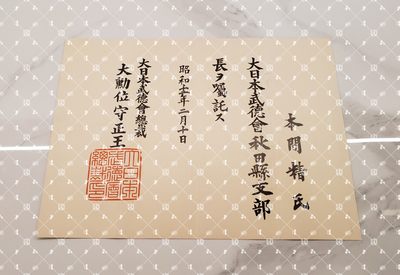 本間精氏
大日本武徳會秋田縣支部
長ヲ嘱託ス
昭和十七年二月十日
大日本武徳會總裁
大勲位守正王